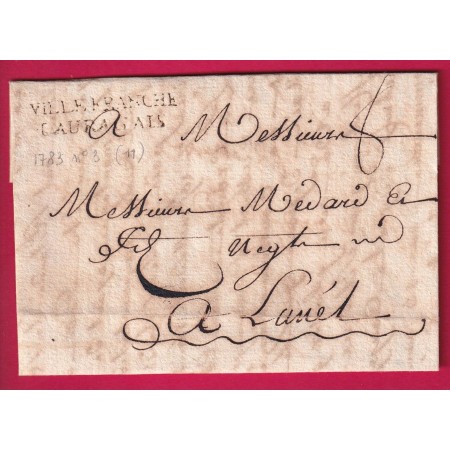 VILLEFRANCHE
LAURAGAIS
1783 n°3 (11)
A Messieurs
Messieurs Medard et
fils Negts
A Lunél